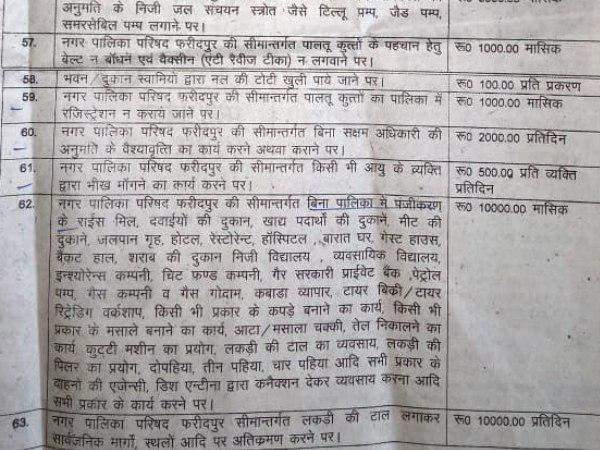 अनुमति के निजी जल संचयन स्त्रोत जैसे टिल्लू पम्प, जैड पम्प,
समरसेबिल पम्प लगाने पर।
57. नगर पालिका परिषद फरीदपुर की सीमान्तर्गत पालतू कुत्तों के पहचान हेतु रू0 1000.00 मासिक
बेल्ट न बाँधने एवं वैक्सीन (एंटी रेवीज टीका) न लगवाने पर।
58. भवन/दुकान स्वामियों द्वारा नल की टोटी खुली पाये जाने पर। रू0 100.00 प्रति प्रकरण
59. नगर पालिका परिषद फरीदपुर की सीमान्तर्गत पालतू कुत्तों का पालिका में रू0 1000.00 मासिक
रजिस्ट्रेशन न कराये जाने पर।
60. नगर पालिका परिषद फरीदपुर की सीमान्तर्गत बिना सक्षम अधिकारी की रू0 2000.00 प्रतिदिन
अनुमति के वैश्यावृत्ति का कार्य करने अथवा कराने पर।
61. नगर पालिका परिषद फरीदपुर की सीमान्तर्गत किसी भी आयु के व्यक्ति रू0 500.00 प्रति व्यक्ति
द्वारा भीख माँगने का कार्य करने पर। प्रतिदिन
62. नगर पालिका परिषद फरीदपुर की सीमान्तर्गत बिना पालिका मे पंजीकरण रू0 10000.00 मासिक
के राईस मिल, दवाईयों की दुकान, खाद्य पदार्थो की दुकाने, मीट की
दुकाने, जलपान गृह, होटल, रेस्टोरेन्ट, हॉस्पिटल , बारात घर, गेस्ट हाउस,
बैंकट हाल, शराब की दुकान निजी विद्यालय , व्यवसायिक विद्यालय,
इन्श्योरेन्स कम्पनी, चिट फण्ड कम्पनी, गैर सरकारी प्राईवेट बैंक ,पेट्रोल
पम्प, गैस कम्पनी व गैस गोदाम, कबाडा व्यापार, टायर बिक्री/टायर
रिट्रेडिंग वर्कशाप, किसी भी प्रकार के कपड़े बनाने का कार्य, किसी भी
प्रकार के मसाले बनाने का कार्य, आटा/मसाला चक्की, तेल निकालने का
कार्य कुटटी मशीन का प्रयोग, लकड़ी की टाल का व्यवसाय, लकड़ी की
पिलर का प्रयोग, दोपहिया, तीन पहिया, चार पहिया आदि सभी प्रकार के
वाहनो की एजेन्सी, डिश एन्टीना द्वारा कनैक्शन देकर व्यवसाय करना आदि
सभी प्रकार के कार्य करने पर।
63. नगर पालिका परिषद फरीदपुर सीमान्तर्गत लकड़ी की टाल लगाकर रू0 10000.00 प्रतिदिन
सार्वजनिक मार्गो, स्थलों आदि पर अतिक्रमण करने पर।